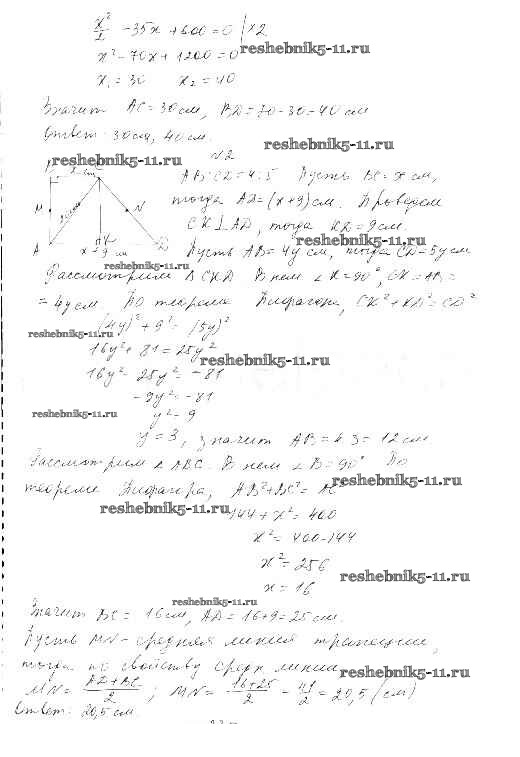 x²/2 - 35x + 600 = 0 | ×2
x² - 70x + 1200 = 0
reshebnik5-11.ru
x₁ = 30 x₂ = 40
Значит AC = 30 см, BD = 70 - 30 = 40 см
Ответ: 30 см, 40 см.
reshebnik5-11.ru
№2
reshebnik5-11.ru
AB:CD = 4:5 Пусть BC = x см,
тогда AD = (x+9) см. Проведем
CK⊥AD, тогда KD = 9 см.
reshebnik5-11.ru
M N
A K D
x + 9 см
Пусть AB = 4y см, тогда CD = 5y см
reshebnik5-11.ru
Рассмотрим Δ CKD В нем ∠K = 90°, CK = AB =
= 4y см По теореме Пифагора, CK² + KD² = CD²
(4y)² + 9² = (5y)²
reshebnik5-11.ru
16y² + 81 = 25y²
reshebnik5-11.ru
16y² - 25y² = -81
-9y² = -81
reshebnik5-11.ru
y² = 9
y = 3, значит AB = 4·3 = 12 см
Рассмотрим Δ ABC. В нем ∠B = 90° По
reshebnik5-11.ru
теореме Пифагора, AB² + BC² = AC
reshebnik5-11.ru
144 + x² = 400
x² = 400-144
x² = 256
reshebnik5-11.ru
x = 16
reshebnik5-11.ru
Значит BC = 16 см, AD = 16+9 = 25 см.
Пусть MN - средняя линия трапеции,
тогда по свойству средн линии
reshebnik5-11.ru
MN = AD+BC/2 ; MN = 16+25/2 = 41/2 = 20,5 (см)
Ответ: 20,5 см